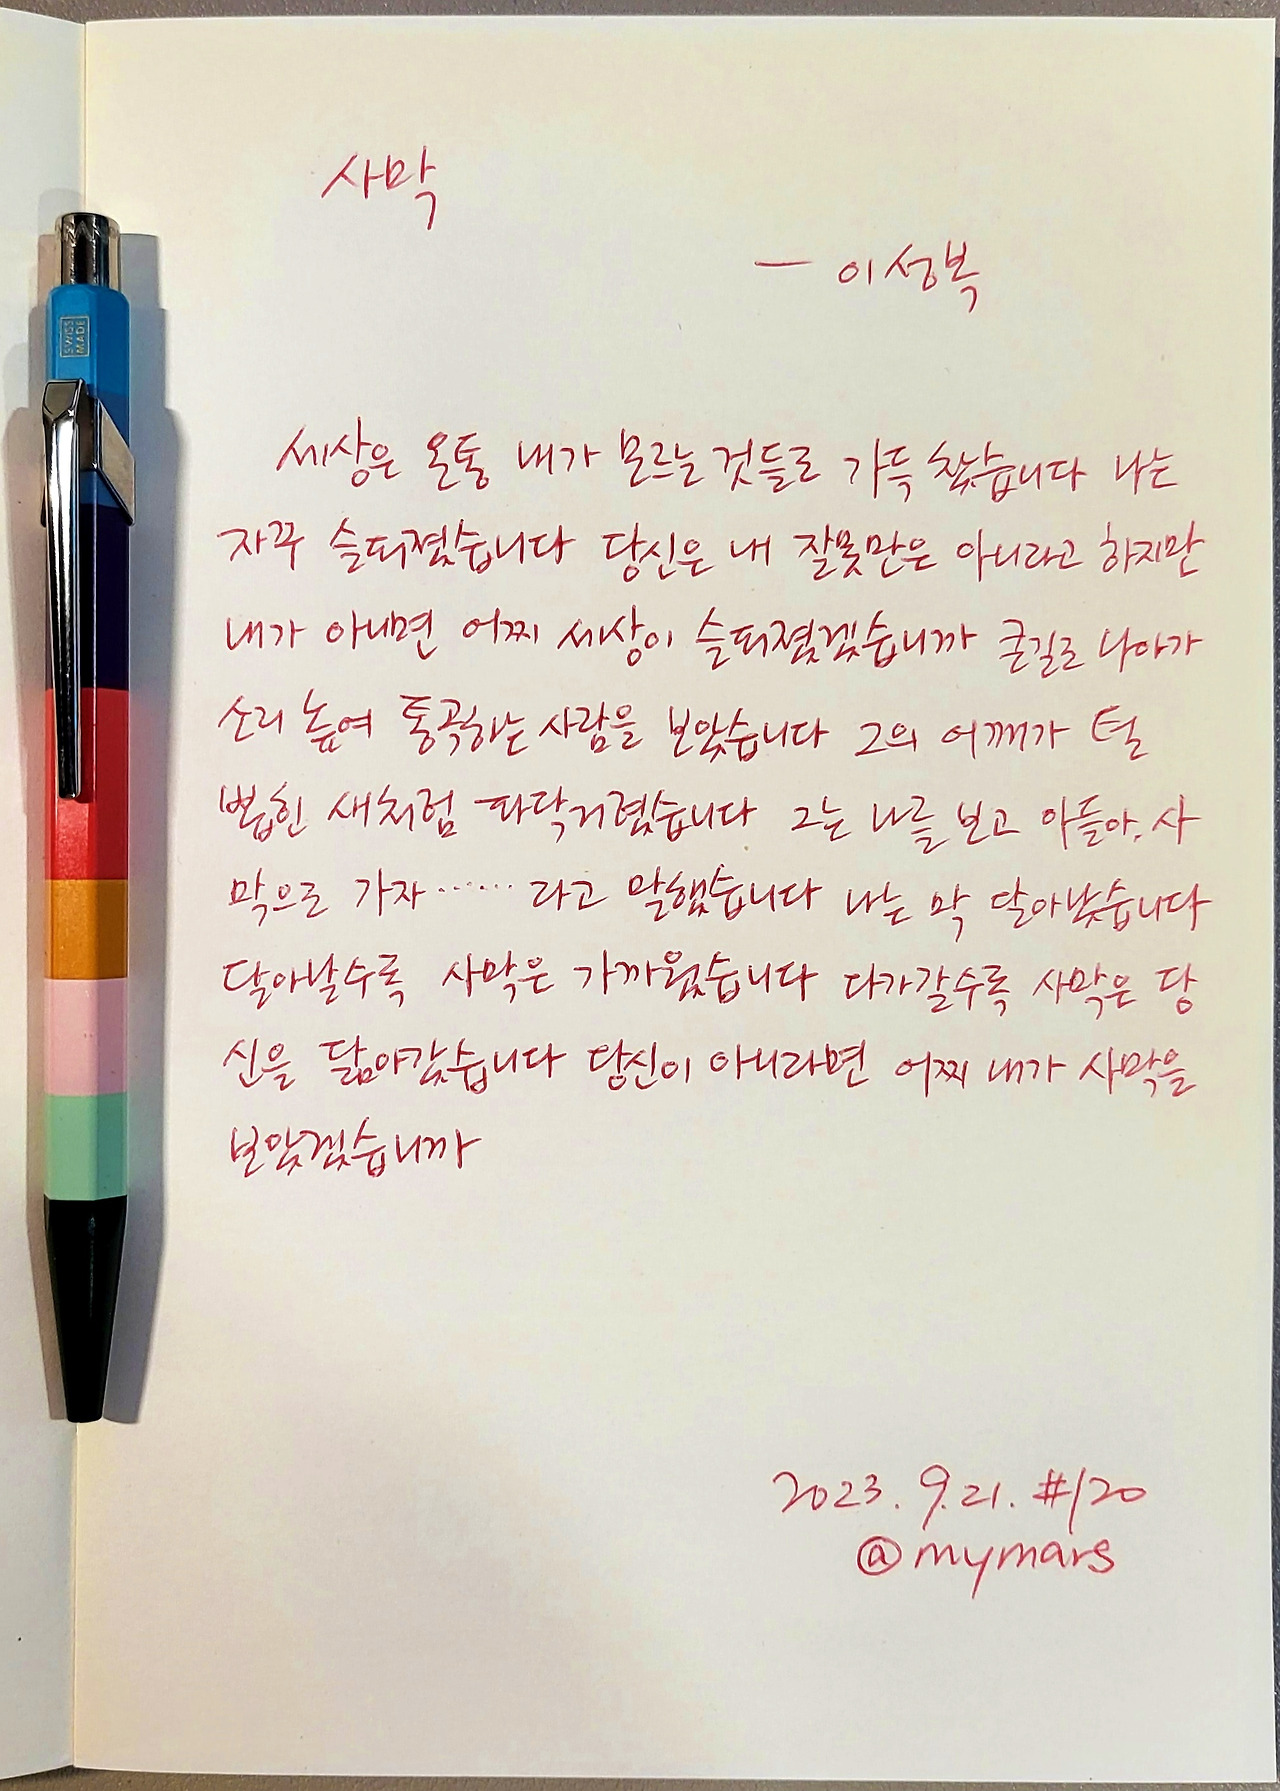 사막
— 이성복
SWISS
MADE
세상은 온통 내가 모르는 것들로 가득 찼습니다 나는
자꾸 슬퍼졌습니다 당신은 내 잘못만은 아니라고 하지만
내가 아니면 어찌 세상이 슬퍼졌겠습니까 큰길로 나아가
소리 높여 통곡하는 사람을 보았습니다 그의 어깨가 털
뽑힌 새처럼 파닥거렸습니다 그는 나를 보고 아들아, 사
막으로 가자…… 라고 말했습니다 나는 막 달아났습니다
달아날수록 사막은 가까웠습니다 다가갈수록 사막은 당
신을 닮아갔습니다 당신이 아니라면 어찌 내가 사막을
보았겠습니까
2023. 9. 21. #120
@mymars